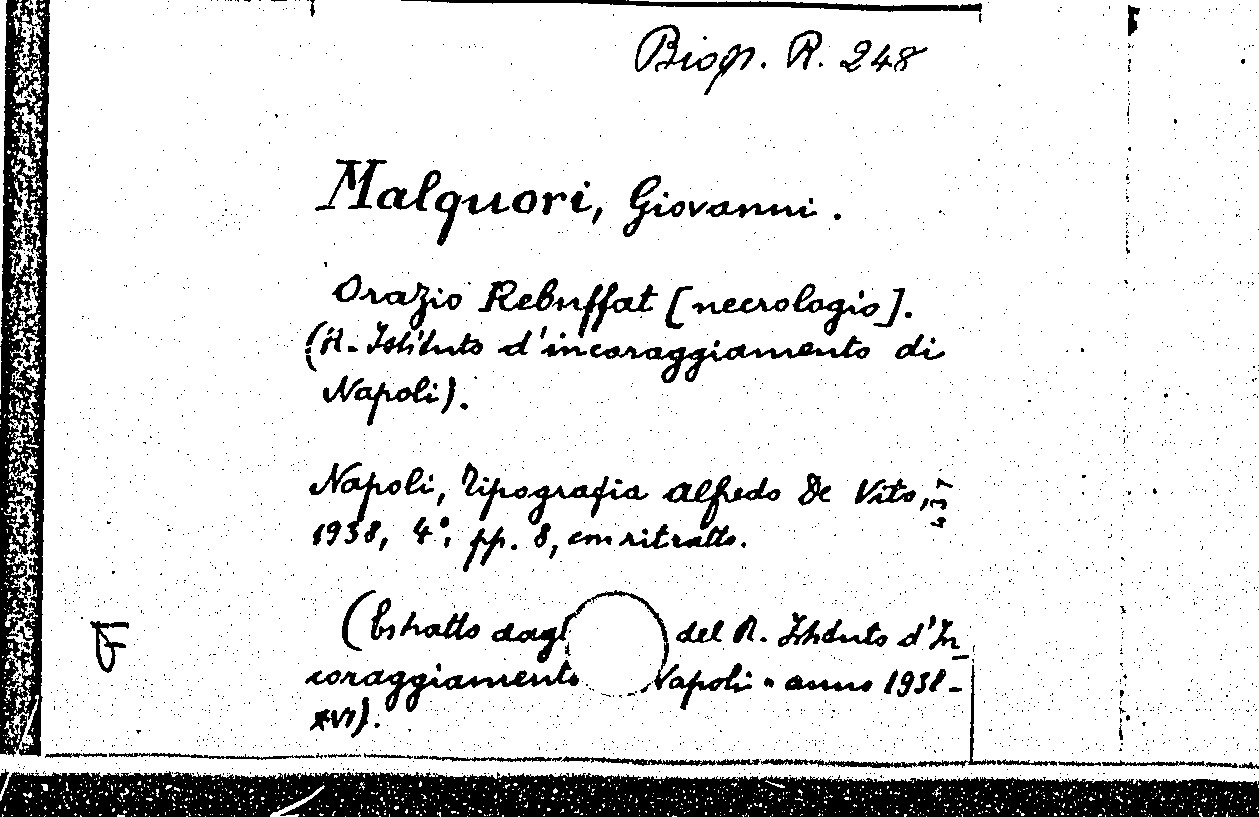 Biogr. R. 248
Malquori, Giovanni.
Orazio Rebuffat [necrologio].
(R. Istituto d'incoraggiamento di
Napoli).
Napoli, Tipografia Alfredo De Vito,
1938, 4°, pp. 8, con ritratto.
(Estratto dagl del R. Istituto d'In-
coraggiamento Napoli " anno 1938-
XVI).